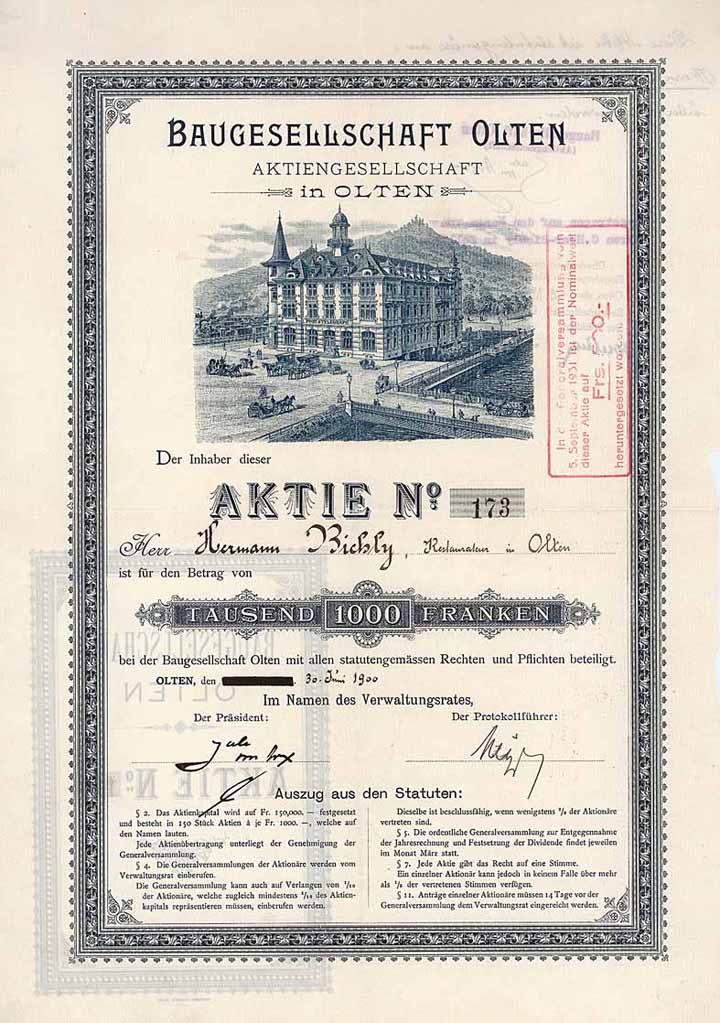 BAUGESELLSCHAFT OLTEN
AKTIENGESELLSCHAFT
in OLTEN
In der Generalversammlung vom
5. September 1931 ist der Nominalwert
dieser Aktie auf
Frs.
heruntergesetzt worden.
Der Inhaber dieser
AKTIE No. 173
Herr Hermann Bichly, Restaurateur in Olten
ist für den Betrag von
TAUSEND 1000 FRANKEN
bei der Baugesellschaft Olten mit allen statutengemässen Rechten und Pflichten beteiligt.
OLTEN, den 30. Juni 1900
Im Namen des Verwaltungsrates,
Der Präsident: Der Protokollführer:
Auszug aus den Statuten:
§ 2. Das Aktienkapital wird auf Fr. 150,000. — festgesetzt
und besteht in 150 Stück Aktien à je Fr. 1000. —, welche auf
den Namen lauten.
Jede Aktienübertragung unterliegt der Genehmigung der
Generalversammlung.
§ 4. Die Generalversammlungen der Aktionäre werden vom
Verwaltungsrat einberufen.
Die Generalversammlung kann auch auf Verlangen von 1/10
der Aktionäre, welche zugleich mindestens 1/10 des Aktien-
kapitals repräsentieren müssen, einberufen werden.
Dieselbe ist beschlussfähig, wenn wenigstens der Aktionäre
vertreten sind.
§ 5. Die ordentliche Generalversammlung zur Entgegennahme
der Jahresrechnung und Festsetzung der Dividende findet jeweilen
im Monat März statt.
§ 7. Jede Aktie gibt das Recht auf eine Stimme.
Ein einzelner Aktionär kann jedoch in keinem Falle über mehr
als 1/5 der vertretenen Stimmen verfügen.
§ 11. Anträge einzelner Aktionäre müssen 14 Tage vor der
Generalversammlung dem Verwaltungsrat eingereicht werden.